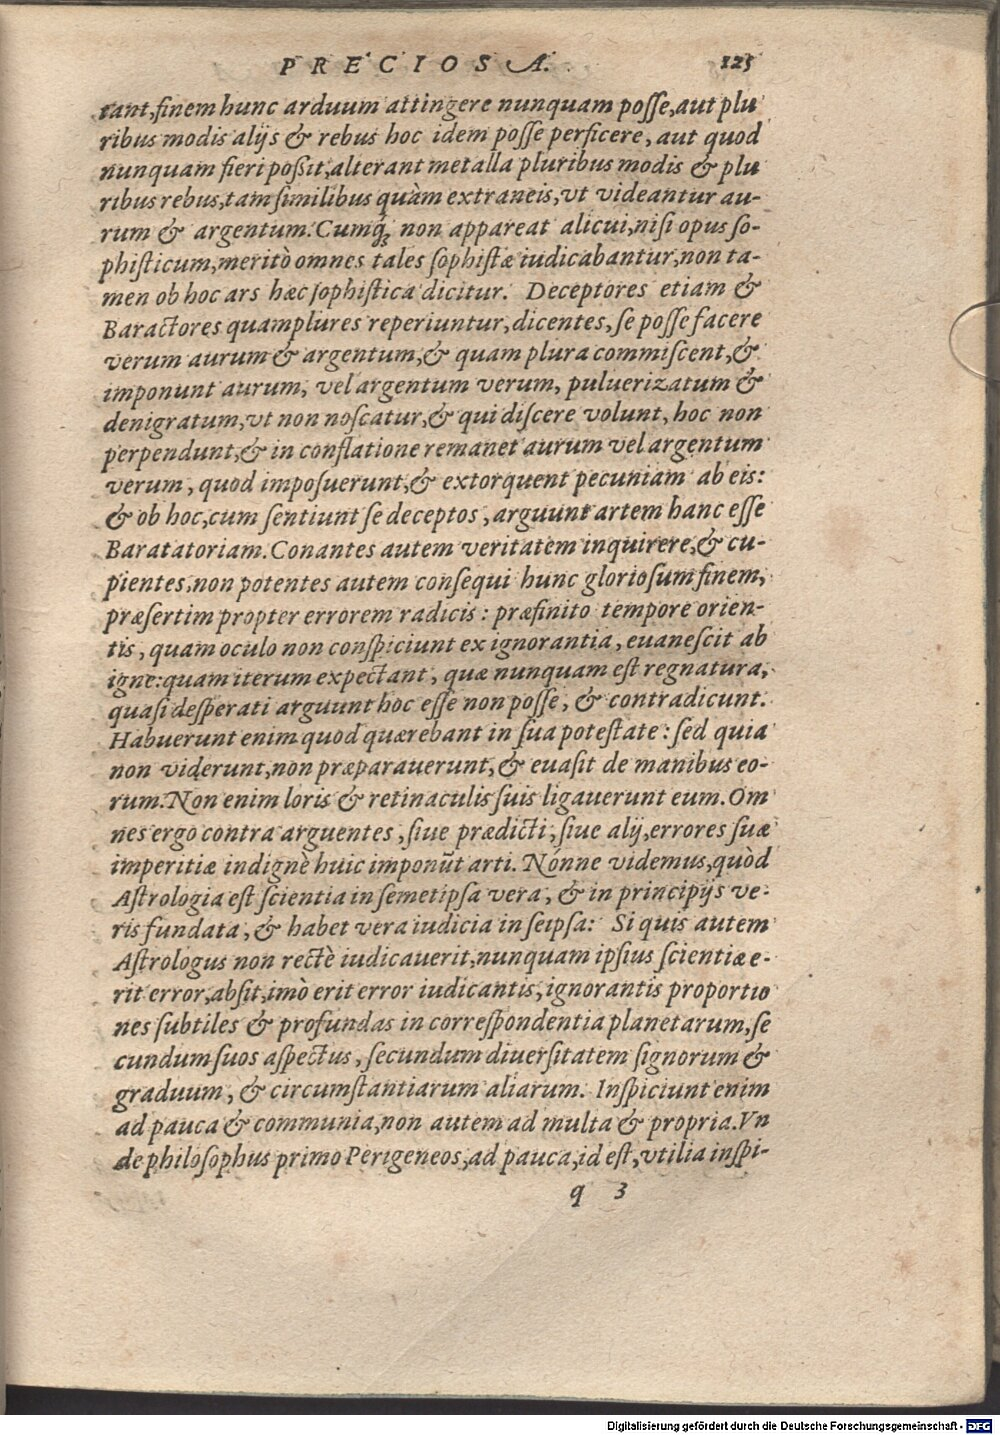 PRECIOSA. 125
tant,finem hunc arduum attingere nunquam posse,aut plu
ribus modis alijs & rebus hoc idem posse perficere, aut quod
nunquam fieri possit,alterant metalla pluribus modis & plu
ribus rebus,tam similibus quàm extraneis,vt videantur au-
rum & argentum.Cumq; non appareat alicui,nisi opus so-
phisticum,meritò omnes tales sophistæ iudicabantur,non ta-
men ob hoc ars hæc sophistica dicitur. Deceptores etiam &
Baractores quamplures reperiuntur,dicentes,se posse facere
verum aurum & argentum,& quam plura commiscent,&
imponunt aurum, vel argentum verum, puluerizatum &
denigratum,vt non noscatur,& qui discere volunt, hoc non
perpendunt,& in conflatione remanet aurum vel argentum
verum, quod imposuerunt,& extorquent pecuniam ab eis:
& ob hoc,cum sentiunt se deceptos, arguunt artem hanc esse
Baratatoriam.Conantes autem veritatem inquirere,& cu-
pientes,non potentes autem consequi hunc gloriosum finem,
præsertim propter errorem radicis: præfinito tempore orien-
tis, quam oculo non conspiciunt ex ignorantia, euanescit ab
igne:quam iterum expectant, quæ nunquam est regnatura,
quasi desperati arguunt hoc esse non posse, & contradicunt.
Habuerunt enim quod quærebant in sua potestate: sed quia
non viderunt,non præparauerunt,& euasit de manibus eo-
rum.Non enim loris & retinaculis suis ligauerunt eum.Om
nes ergo contra arguentes, siue prædicti, siue alij,errores suæ
imperitiæ indignè huic imponūt arti. Nónne videmus,quòd
Astrologia est scientia in semetipsa vera, & in principijs ve-
ris fundata, & habet vera iudicia in seipsa: Si quis autem
Astrologus non rectè iudicauerit,nunquam ipsius scientiæ e-
rit error,absit,imò erit error iudicantis,ignorantis proportio
nes subtiles & profundas in correspondentia planetarum,se
cundum suos aspectus, secundum diuersitatem signorum &
graduum, & circumstantiarum aliarum. Inspiciunt enim
ad pauca & communia,non autem ad multa & propria.Vn
de philosophus primo Perigeneos,ad pauca,id est,vtilia inspi-
q 3
Digitalisierung gefördert durch die Deutsche Forschungsgemeinschaft - DFG